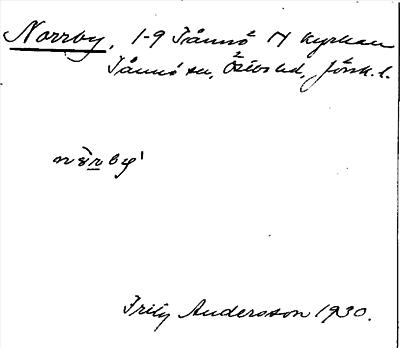 Norrby, 1-9 Tånnö N kyrkan
Tånnö sn, Östbo hd, Jönk. l.
Fritz Andersson 1930.